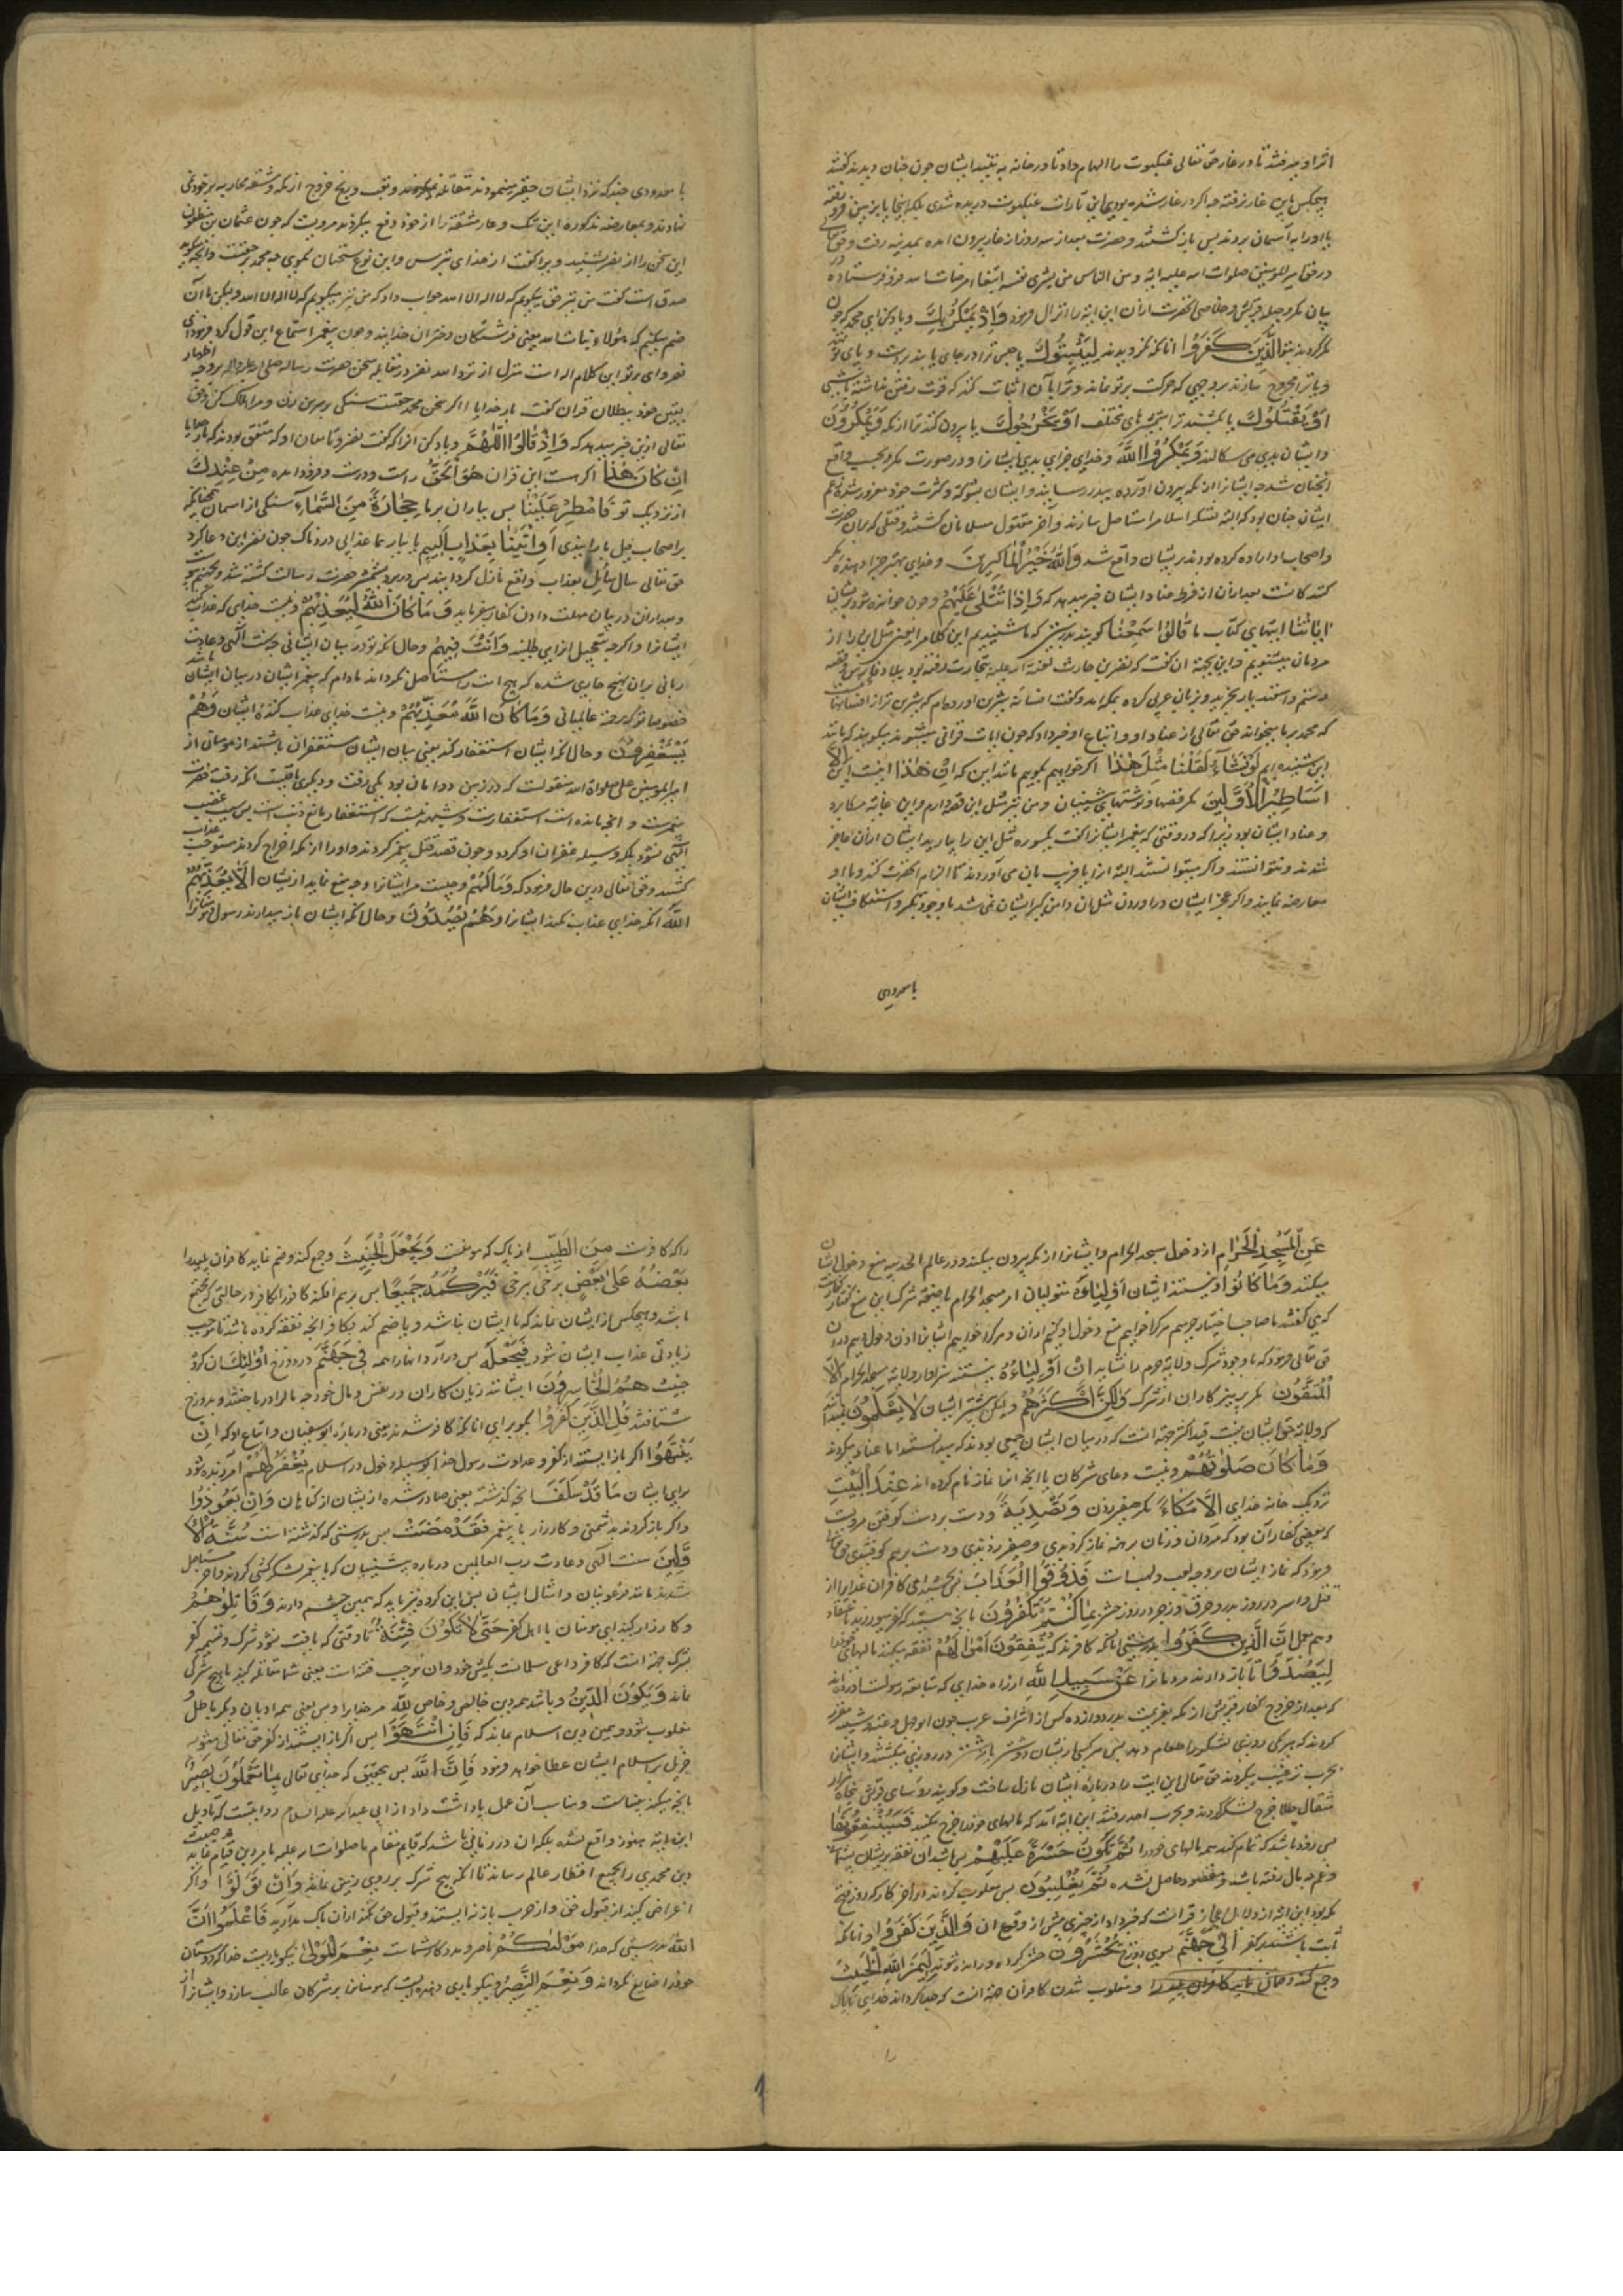 اثر او میرفتند تا در غار حق تعالی عنکبوت را الهام داد تا در خانه به تنید ایشان چون چنان دیدند گفتند
هیچکس باین غار نرفته چه اگر در غار شده بودی این تارات عنکبوت دریده شدی بلکه اینجا یا بزمین فرو رفته
یا او را به آسمان بردند پس باز گشتند و حضرت بعد از سه روز از غار بیرون آمده بمدینه رفت و حق تعالی
در حق امیر المومنین صلوات الله علیه ایه و من الناس من یشری نفسه ابتغاء مرضات الله فرو فرستاد و در
بیان مکر و حیله قریش و خلاصی آنحضرت از ان این ایه را انزال فرمود وَاِذْ یَمْکُرُ بِكَ و یاد کن ای محمد که چون
مکر کردند بتو الَّذینَ كَفَرُوا آنانکه نگرویدند لِیُثْبِتُوكَ یا حبس ترا در جای یا بند بر دست و پای تو نهند
و یا ترا مجروح سازند بر وجهی که حرکت برتو نماند و ترا بآن اثبات کند که قوت رفتن نداشته باشی
اَوْ یَقْتُلُوكَ یا بکشند ترا بشمشیرهای مختلف اَوْ یُخْرِجُوكَ یا بیرون کنند ترا از مکه وَیَمْكُرُونَ
و ایشان بدی می سکالند وَیَمْكُرُ اللّٰهُ و خدای جزای بدی ایشانرا و در صورت مکر و بحسب واقع
آنچنان شد چه ایشانرا از مکه بیرون آورده ببدر رسانیدند و ایشان بشوکت و کثرت خود مغرور شده زعم
ایشان چنان بود که البته لشکر اسلام را مستاصل سازند و آخر مقتول مسلمانان گشتند و قتلی که بآن حضرت
و اصحاب او اراده کرده بودند بریشان واقع شد وَاللّٰهُ خَیْرُ الْمَاكِرِینَ و خدای بهترین جزا دهنده مکر
کنندکانست بعد از ان از فرط عناد ایشان خبر میدهد که وَاِذَا تُتْلٰى عَلَیْهِمْ و چون خوانده شود بریشان
اٰیَاتُنَا ایتهای کتاب ما قَالُوا سَمِعْنَا کویند بدرستی که ما شنیدیم این کلام را یعنی مثل این را از
مردمان میشنویم و این بجهة ان گفت که نضر بن حارث لعنة الله علیه بتجارت رفته بود ببلاد فارس و قصه
رستم و اسفندیار بخرید و بزبان عربی کرده بمکه آمد و گفت افسانه شیرین آورده‌ام که شیرین تر از افسانهاست
که محمد بر ما میخواند حق تعالی از عناد او و اتباع او خبر داد که چون ایات قرانی میشنوند میکویند که ما نیز
این شنیده‌ایم لَوْ نَشَاءُ لَقُلْنَا مِثْلَ هٰذَا اگر خواهیم بکوییم مانند این که اِنْ هٰذَا نیست این اِلَّا
اَسَاطِیرُ الْاَوَّلِینَ مکر قصها و نوشتهای پیشینیان و من نیز مثل این قصه دارم و این غایة مکابره
و عناد ایشان بود زیرا که در وقتی که پیغمبر ایشانرا گفت یکسوره مثل این را بیارید ایشان از ان عاجز
شدند و نتوانستند و اگر میتوانستند البته از ایا قریب بان می آوردند تا الزام آنحضرت کنند و با او
معارضه نمایند و اگر عجز ایشان در اوردن مثل ان دامن گیر ایشان نمی شد با وجود تکبر و استنکاف ایشان
با معدودی
با معدودی چند که نزد ایشان حقیر مینمودند مقابله نمیکردند و تعب و رنج خروج از مکه و مشقه محاربه بر خود نمی
نهادند و بمعارضه مذکوره این ننک و عار و مشقة را از خود دفع میکردند مرویست که چون عثمان بن مظعون
این سخن را از نضر شنید ویرا گفت از خدای بترس و این نوع سخنان مگوی چه محمد بر حقست و آنچه میگوید
صدق است گفت من نیز حق میگویم که لا اله الا الله جواب داد که من نیز میگویم که لا اله الا الله ولیکن با آن
ضم میکنم که هؤلاء بنات الله یعنی فرشتکان دختران خدایند و چون پیغمبر استماع این قول کرد فرمود ای
نضر وای بر تو این کلام اله است منزل از نزد الله نضر در مقابله سخن حضرت رساله صلی الله علیه و اله بر وجه اظهار
یقین خود ببطلان قران گفت بار خدایا اگر سخن محمد حقست سنگی بر سر من زن و مرا هلاک کن و حق
تعالی ازین خبر میدهد که وَاِذْ قَالُوا اللّٰهُمَّ و یاد کن انرا که گفت نضر و تابعان او که متفق بودند که بار خدایا
اِنْ كَانَ هٰذَا اگر هست این قران هُوَ الْحَقَّ راست و درست و فرود آمده مِنْ عِنْدِكَ
از نزدیک تو فَاَمْطِرْ عَلَیْنَا پس بباران بر ما حِجَارَةً مِنَ السَّمَاءِ سنگی از آسمان چنانکه
بر اصحاب فیل بارانیدی اَوِ ائْتِنَا بِعَذَابٍ اَلِیمٍ یا بیار بما عذابی دردناک چون نضر این دعا کرد
حق تعالی سال سائل بعذاب واقع نازل کردانید پس در بدر بشمشیر حضرت رسالت کشته شد و بجهنم پیوست
و بعد از ان در بیان مهلت دادن کفار میفرماید وَ مَا كَانَ اللّٰهُ لِیُعَذِّبَهُمْ و نیست خدای که عذاب کند
ایشانرا و اگرچه بتعجیل انرا می طلبند وَاَنْتَ فِیهِمْ و حال آنکه تو در میان ایشانی چه سنت الهی و عادت
ربانی بران نهج جاری شده که هیچ امت را مستاصل نگرداند مادام که پیغمبر ایشان در میان ایشان باشد
خصوصا تو که رحمة عالمیانی وَمَا كَانَ اللّٰهُ مُعَذِّبَهُمْ و نیست خدای عذاب کننده ایشان وَهُمْ
یَسْتَغْفِرُونَ و حال انکه ایشان استغفار کنند یعنی میان ایشان مستغفران باشند از مومنان از
امیر المومنین علی صلواة الله منقولست که در زمین دو امان بود یکی رفت و دیگری باقیست آنکه رفت حضرت
پیغمبرست و انچه مانده است استغفارست و شبهه نیست که استغفار مانع ذنب است پس سبب غضب
الهی نشود بلکه وسیله غفران او گردد و چون قصد قتل پیغمبر کردند و او را از مکه اخراج کردند مستوجب عذاب
کشتند و حق تعالی درین حال فرمود که وَمَا لَهُمْ و چیست مر ایشانرا و چه منع نماید ازیشان اَلَّا یُعَذِّبَهُمُ
اللّٰهُ آنکه خدای عذاب نکند ایشانرا وَهُمْ یَصُدُّونَ و حال انکه ایشان باز میدارند رسول و مومنانرا
عَنِ الْمَسْجِدِ الْحَرَامِ از دخول مسجد الحرام و ایشانرا از مکه بیرون میکنند و در عام الحدیبیه منع دخول ایشان
میکنند وَمَا كَانُوا و نیستند ایشان اَوْلِیَاءَهُ متولیان امر مسجد الحرام با وجود شرک این منع کفار مکه راست
که می گفتند ما صاحب اختیار حرمیم هر کرا خواهیم منع دخول او کنیم از ان و هر کرا خواهیم ایشانرا اذن دخول دهیم در ان
حق تعالی فرمود که با وجود شرک ولایة حرم را نشاید اِنْ اَوْلِیَاؤُهُ نیستند سزاوار ولایة مسجد الحرام اِلَّا
الْمُتَّقُونَ مکر پرهیز کاران از شرک وَلٰكِنَّ اَكْثَرَهُمْ ولیکن بیشتر ایشان لَا یَعْلَمُونَ نمیدانند
که ولایة حق ایشان نیست قید اکثر جهة انست که در میان ایشان جمعی بودند که میدانستند اما عناد میکردند
وَمَا كَانَ صَلٰوتُهُمْ و نیست دعای مشرکان یا آنچه انرا نماز نام کرده‌اند عِنْدَ الْبَیْتِ
نزدیک خانه خدای اِلَّا مُكَاءً مکر صفیر زدن وَتَصْدِیَةً و دست بر دست کوفتن مرویست
که بعضی کفار آن بود که مردان و زنان برهنه نماز کردندی و صفیر زدندی و دست برهم کوفتندی حق تعالی
فرمود که نماز ایشان بر وجه لعب و لهو است فَذُوقُوا الْعَذَابَ پس بچشید ای کافران عذاب را از
قتل و اسر در روز بدر و حرق و زجر در روز حشر بِمَا كُنْتُمْ تَكْفُرُونَ بآنچه هستید که کفر میورزید باعتقاد
و هم بعمل اِنَّ الَّذِینَ كَفَرُوا بدرستی آنانکه کافرند که یُنْفِقُونَ اَمْوَالَهُمْ نفقه میکنند مالهای خود را
لِیَصُدُّوا تا باز دارند مردمانرا عَنْ سَبِیلِ اللّٰهِ از راه خدای که متابعت رسولست اورده‌اند
که بعد از خروج کفار قریش از مکه بعزیمت بدر دوازده کس از اشراف عرب چون ابو جهل و عتبه و شیبه مقرر
کردند که هر یکی روزی لشکر را طعام دهد پس هر کسی ازیشان ده شتر یا نه شتر در روزی میکشتند و ایشانرا
بحرب ترغیب میکردند حق تعالی این ایت را درباره ایشان نازل ساخت و گویند روسای قریش پنجاه هزار
مثقال طلا خرج لشکر کردند و بحرب احد رفتند این ایه آمد که مالهای خود را خرج میکنند فَسَیُنْفِقُونَهَا
پس زود باشد که تمام کنند همه مالهای خود را ثُمَّ تَكُونُ عَلَیْهِمْ حَسْرَةً پس باشد آن نفقه بریشان پشیمانی
و غم چه مال رفته باشد و مقصود حاصل نشده ثُمَّ یُغْلَبُونَ پس مغلوب گردانند در آخر کار که روز فتح
مکه بود این ایه از دلایل اعجاز قرانست که خبر داد از چیزی پیش از وقوع ان وَالَّذِینَ كَفَرُوا و انانکه
ثابت باشند بر کفر اِلٰى جَهَنَّمَ بسوی دوزخ یُحْشَرُونَ حشر کرده و رانده شوند لِیَمِیزَ اللّٰهُ الْخَبِیثَ
و جمع کند و ضم نماید کافران پلید را و مغلوب شدن کافران جهة انست که جدا گرداند خدای ناپاک
را
را که کافرست مِنَ الطَّیِّبِ از پاک که مومنست وَیَجْعَلَ الْخَبِیثَ و جمع کند و ضم نماید کافران پلید را
بَعْضَهُ عَلٰى بَعْضٍ برخی بر برخی فَیَرْكُمَهُ جَمِیعًا پس برهم افکند کافر را بکافر در حالتی که مجتمع
باشد و هیچکس از ایشان نماند که با ایشان نباشد و یا ضم کند بکافر انچه نفقه کرده باشد تا موجب
زیادتی عذاب ایشان شود فَیَجْعَلَهُ پس درآرد انها را همه فِی جَهَنَّمَ در دوزخ اُولٰئِكَ ان گروه
خبیث هُمُ الْخَاسِرُونَ ایشانند زیان کاران در نفس و مال خود چه مال را در باختند و بدوزخ
شتافتند قُلْ لِلَّذِینَ كَفَرُوا بگو برای انانکه کافر شدند یعنی درباره ابو سفیان و اتباع او که اِنْ
یَنْتَهُوا اگر باز ایستند از کفر و عداوت رسول خدا بوسیله دخول در اسلام یُغْفَرْ لَهُمْ آمرزیده شود
برای ایشان مَا قَدْ سَلَفَ انچه گذشته یعنی صادر شده ازیشان از گناهان وَاِنْ یَعُودُوا
و اگر باز کردند بدشمنی و کارزار با پیغمبر فَقَدْ مَضَتْ پس بدرستی که گذشته است سُنَّةُ الْاَ
وَّلِینَ سنت الهی و عادت رب العالمین درباره پیشینیان که با پیغمبر لشکر کشی کردند و آخر مستاصل
شدند مانند فرعونیان و امثال ایشان پس این گروه نیز باید که همین چشم دارند وَ قَاتِلُوهُمْ
و کارزار کنید ای مومنان با اهل کفر حَتّٰى لَا تَكُونَ فِتْنَةٌ تا وقتی که یافت نشود شرک و تسمیه کفر
بشرک جهة انست که کافر داعی مسلمانست بکیش خود و ان موجب فتنه است یعنی شما مقاتله کنید تا هیچ شرک
نماند وَیَكُونَ الدِّینُ و باشد همه دین خالص و خاص لِلّٰهِ مر خدایرا و بس یعنی همه ادیان دیگر باطل و
مغلوب شود و همین دین اسلام بماند که فَاِنِ انْتَهَوْا پس اگر باز ایستند از کفر حق تعالی مثوبه
جزیل بر اسلام ایشان عطا خواهد فرمود فَاِنَّ اللّٰهَ پس بتحقیق که خدای تعالی بِمَا تَعْمَلُونَ بَصِیرٌ
بانچه میکنند بیناست و مناسب آن عمل پاداشت داد از ابی عبد الله علیه السلام روایتست که تاویل
این ایه هنوز واقع نشده بلکه ان در زمانی باشد که قایم مقام ما صلوات الله علیه بامر دین قیام نماید و جمعیت
دین محمدی را بجمیع اقطار عالم رساند تا انکه هیچ شرک بر روی زمین نماند وَاِنْ تَوَلَّوْا و اگر
اعراض کنند از قبول حق و از حرب باز نه ایستند و قبول حق نکنند از ان باک مدارید فَاعْلَمُوا اَنَّ
اللّٰهَ بدرستی که خدا مَوْلٰىكُمْ ناصر و مددکار شماست نِعْمَ الْمَوْلٰى نیکو یاریست خدا که دوستان
خود را ضایع نگرداند وَنِعْمَ النَّصِیرُ و نیکو یاری دهنده‌ایست که مومنانرا بر مشرکان غالب سازد و ایشانرا از